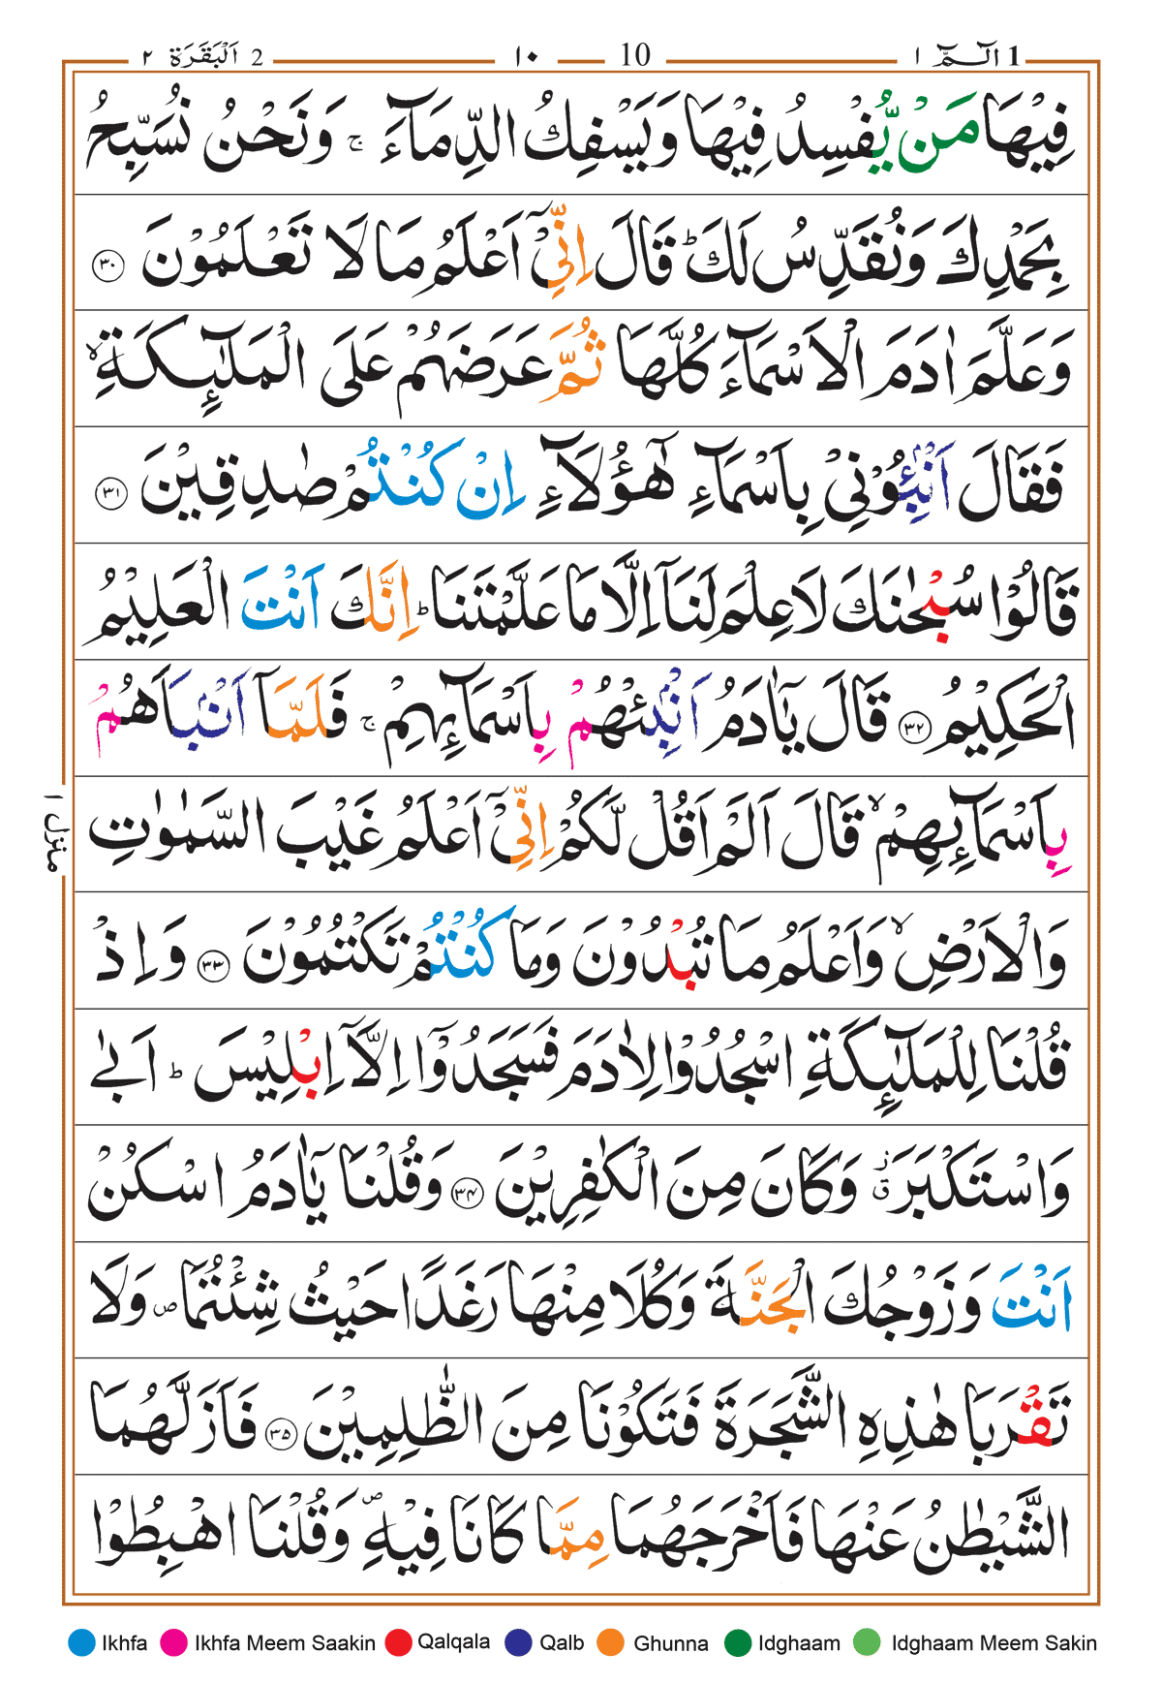 1 الٓـمّٓ ١ 10 ١٠ 2 اَلْبَقَرَة ٢
فِيْهَا مَنْ يُّفْسِدُ فِيْهَا وَيَسْفِكُ الدِّمَآءَ ۚ وَنَحْنُ نُسَبِّحُ
بِحَمْدِكَ وَنُقَدِّسُ لَكَ ؕ قَالَ اِنِّىْٓ اَعْلَمُ مَا لَا تَعْلَمُوْنَ ۝۳۰
وَعَلَّمَ اٰدَمَ الْاَسْمَآءَ كُلَّهَا ثُمَّ عَرَضَهُمْ عَلَى الْمَلٰٓئِكَةِ ۙ
فَقَالَ اَنْۢبِـُٔوْنِىْ بِاَسْمَآءِ هٰٓؤُلَآءِ اِنْ كُنْتُمْ صٰدِقِيْنَ ۝۳۱
قَالُوْا سُبْحٰنَكَ لَا عِلْمَ لَنَآ اِلَّا مَا عَلَّمْتَنَا ؕ اِنَّكَ اَنْتَ الْعَلِيْمُ
الْحَكِيْمُ ۝۳۲ قَالَ يٰٓاٰدَمُ اَنْۢبِئْهُمْ بِاَسْمَآئِهِمْ ۚ فَلَمَّآ اَنْۢبَاَهُمْ
بِاَسْمَآئِهِمْ ۙ قَالَ اَلَمْ اَقُلْ لَّكُمْ اِنِّىْٓ اَعْلَمُ غَيْبَ السَّمٰوٰتِ
وَالْاَرْضِ ۙ وَاَعْلَمُ مَا تُبْدُوْنَ وَمَا كُنْتُمْ تَكْتُمُوْنَ ۝۳۳ وَاِذْ
قُلْنَا لِلْمَلٰٓئِكَةِ اسْجُدُوْا لِاٰدَمَ فَسَجَدُوْٓا اِلَّآ اِبْلِيْسَ ؕ اَبٰى
وَاسْتَكْبَرَ ۗز وَكَانَ مِنَ الْكٰفِرِيْنَ ۝۳۴ وَقُلْنَا يٰٓاٰدَمُ اسْكُنْ
اَنْتَ وَزَوْجُكَ الْجَنَّةَ وَكُلَا مِنْهَا رَغَدًا حَيْثُ شِئْتُمَا ص وَلَا
تَقْرَبَا هٰذِهِ الشَّجَرَةَ فَتَكُوْنَا مِنَ الظّٰلِمِيْنَ ۝۳۵ فَاَزَلَّهُمَا
الشَّيْطٰنُ عَنْهَا فَاَخْرَجَهُمَا مِمَّا كَانَا فِيْهِ ص وَقُلْنَا اهْبِطُوْا
منزل ١
Ikhfa Ikhfa Meem Saakin Qalqala Qalb Ghunna Idghaam Idghaam Meem Sakin